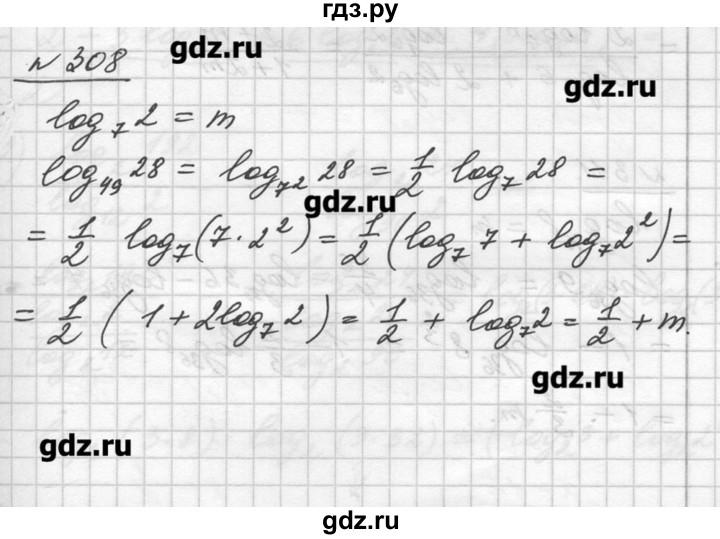 гдз.ру
№308
gdz.ru
gdz.ru
log₇ 2 = m
log₄₉ 28 = log₇² 28 = 1/2 log₇ 28 =
gdz.ru
= 1/2 log₇(7·2²) = 1/2 (log₇ 7 + log₇ 2²) =
= 1/2 (1 + 2log₇ 2) = 1/2 + log₇2 = 1/2 + m.
gdz.ru
gdz.ru
gdz.ru